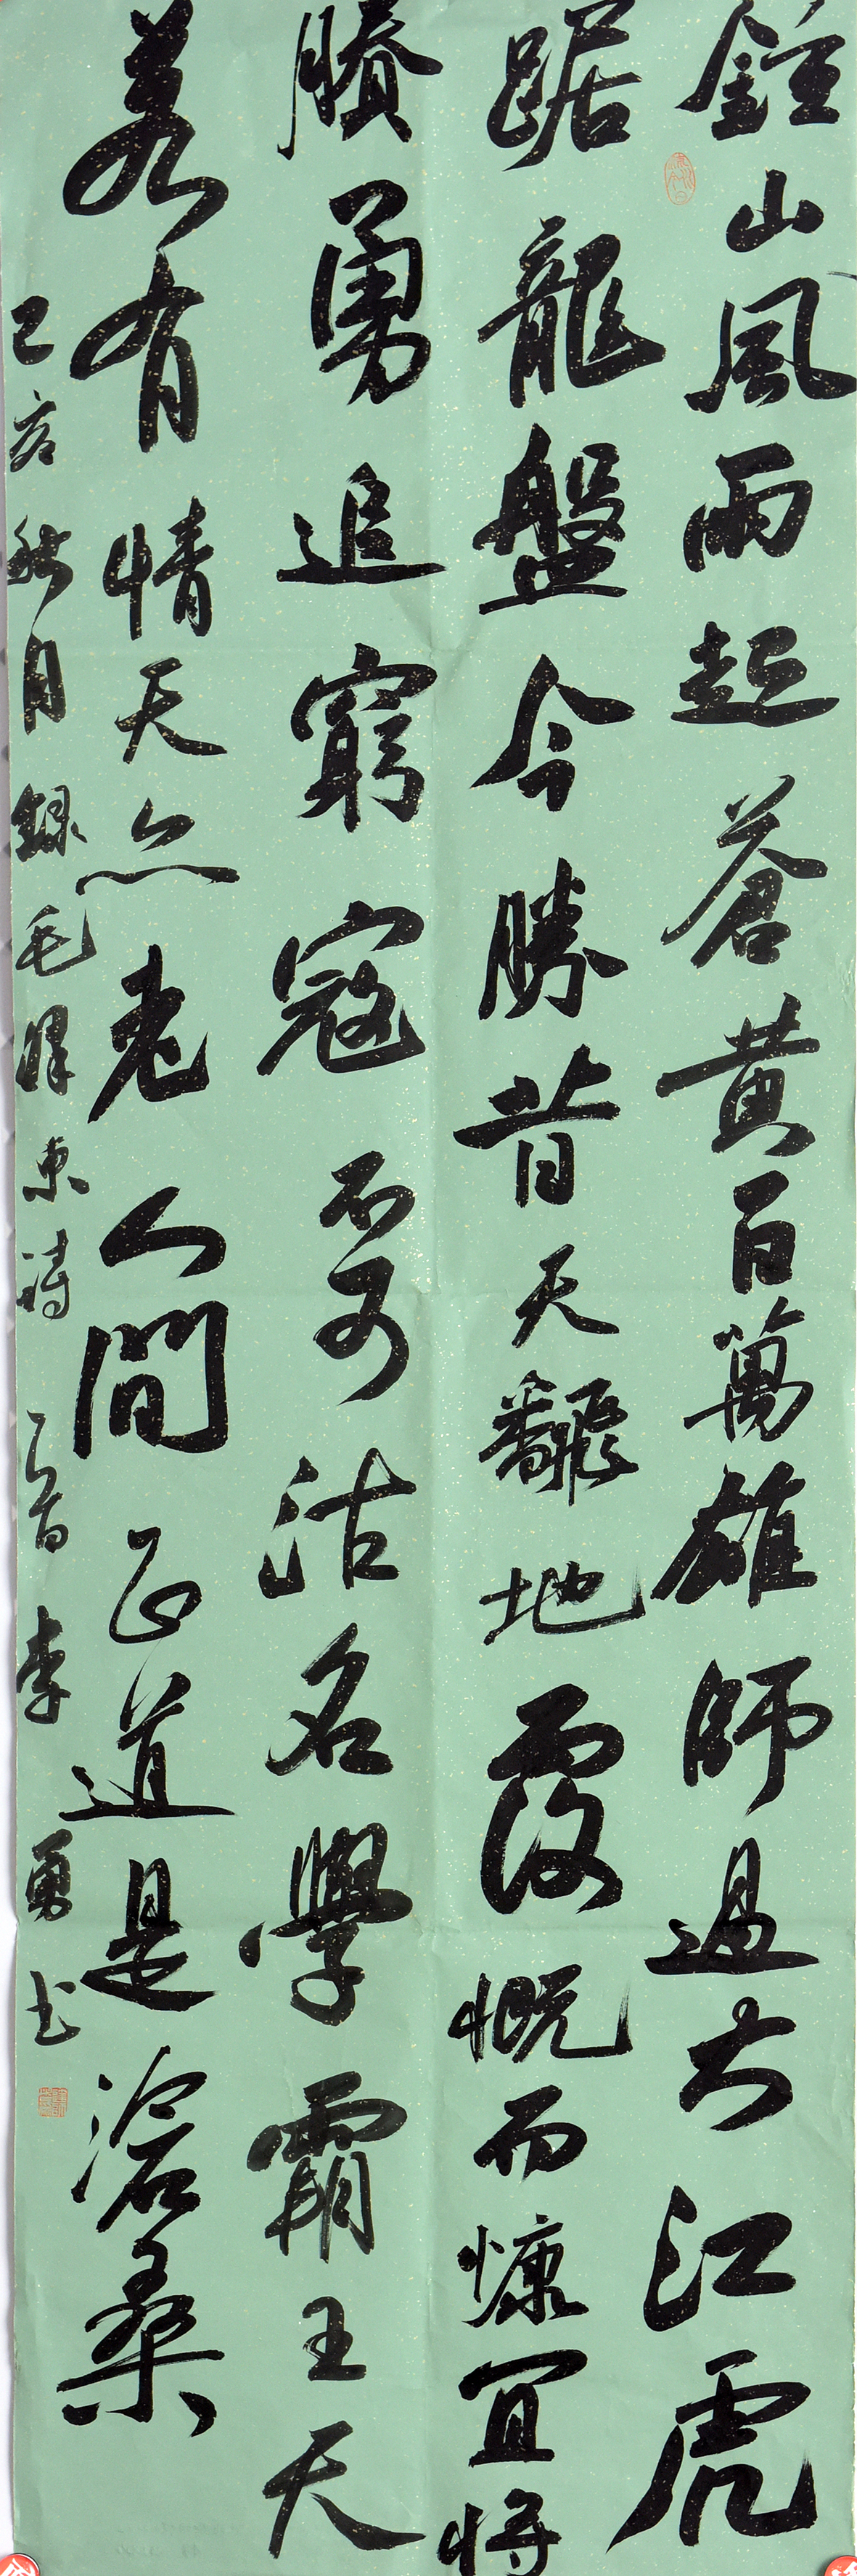 鍾山風雨起蒼黃百萬雄師過大江虎
踞龍盤今勝昔天翻地覆慨而慷宜將
賸勇追窮寇不可沽名學霸王天
若有情天亦老人間正道是滄桑
己亥秋月錄毛澤東詩一首李勇书